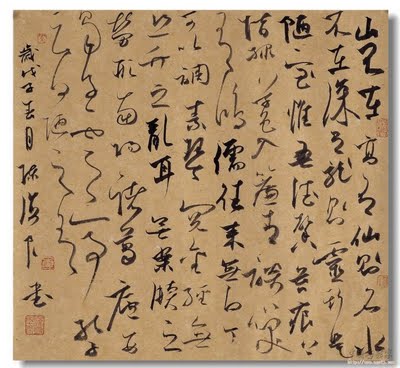 山不在高有仙則名水
不在深有龍則靈斯是
陋室惟吾德馨苔痕上
階綠草色入簾青談笑
有鴻儒往來無白丁
可以調素琴閱金經無
絲竹之亂耳無案牘之
勞形南陽諸葛廬西
蜀子雲亭孔子
云何陋之有
歲戊子春月 書